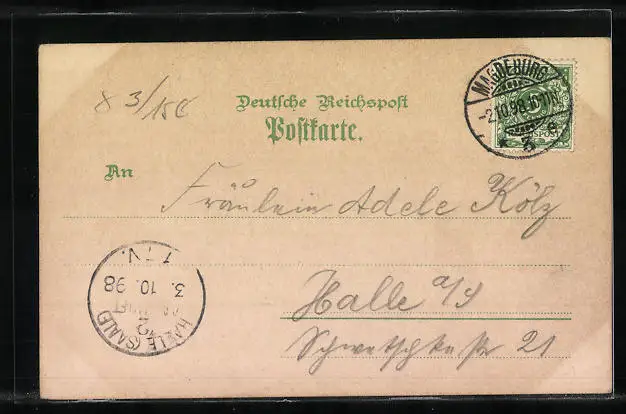 8 3/150
Deutsche Reichspost
Postkarte.
MAGDEBURG
-2.10.98.
* 3
An
Fräulein Adele Kölz
1-2 V.
3. 10. 98
HALLE (SAALE)
Halle a/S
Schwetschkestr 21